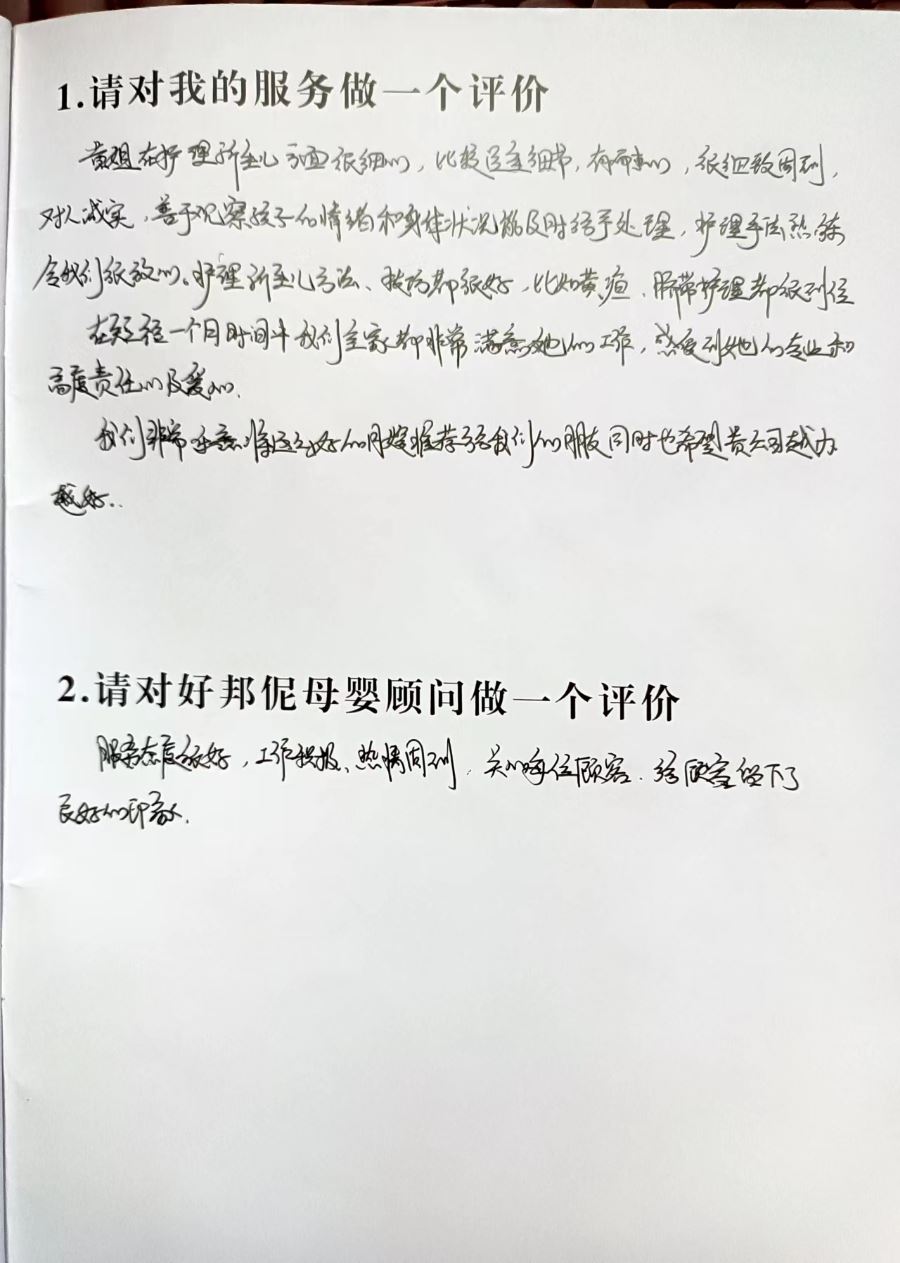 1.请对我的服务做一个评价
黄姐在护理新生儿方面很细心，比较注重细节，有耐心，很细致周到，
对人诚实，善于观察孩子的情绪和身体状况能及时给予处理，护理手法熟练
令我们很放心。护理新生儿方法、技巧都很好，比如黄疸、脐带护理都很到位
在短短一个月时间中我们全家都非常满意她的工作，感受到她的专业和
高度责任心及爱心.
我们非常乐意将这么好的月嫂推荐给我们的朋友同时也希望贵公司越办
越好..
2.请对好邦伲母婴顾问做一个评价
服务态度很好，工作积极、热情周到，关心每位顾客.给顾客留下了
良好的印象.